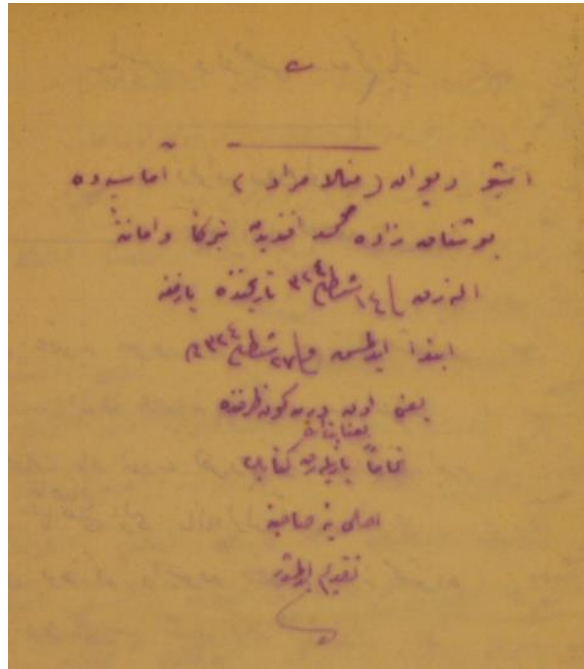 اشبو ديوان (منلا مراد) آماسيه‌ده
بوشناق زاده محمد افندينڭ تبركا و امانة
الندن ١٤ شباط ٣٢٤ تاريخنده يازمغه
ابتدا ايدلمش و ٢٧ شباط ٣٢٤ ده
يعنى اون درت كون ظرفنده
بعنايته
تماماً يازيلارق كتابڭ
اصلى ينه صاحبنه
تقديم ايدلمشدر